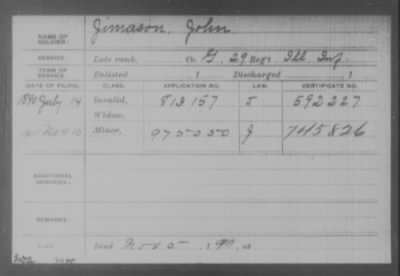 NAME OF SOLDIER: Jimason, John
SERVICE: Late rank, Co. G, 29 Reg't Ill Inf.
TERM OF SERVICE: Enlisted , 1 Discharged , 1
DATE OF FILING. CLASS. APPLICATION NO. LAW. CERTIFICATE NO.
1890 July 14 Invalid, 813157 J 592227
Widow,
1911 Nov 13 Minor, 975050 J 745826
ADDITIONAL SERVICES:
REMARKS:
Died Nov 5 , 1911, at